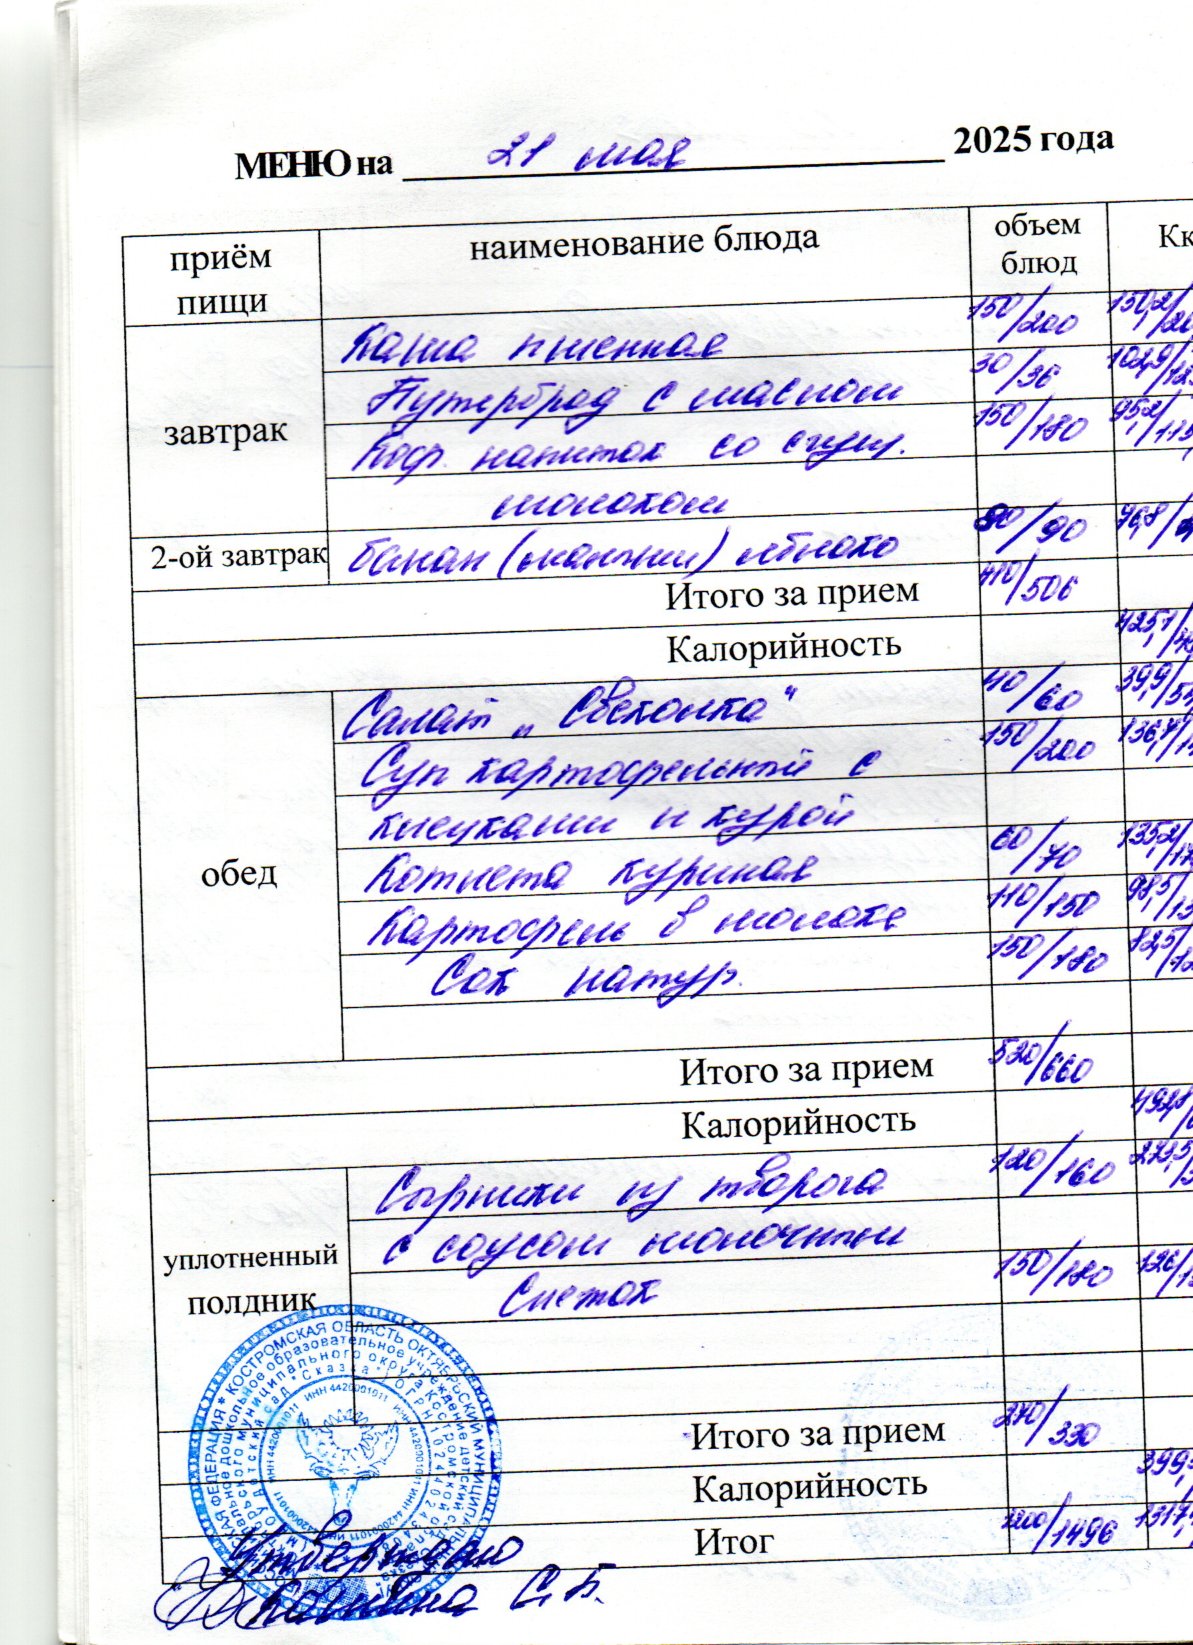 МЕНЮ на 21 мая 2025 года
приём пищи наименование блюда объем блюд Кк
завтрак Каша пшенная 150/200 150,2/
Бутерброд с маслом 30/36 102,9/
Коф. напиток со сгущ. 150/180 95,2/
молоком
2-ой завтрак банан (мандарин) яблоко 80/90 76,8/
Итого за прием 410/506
Калорийность 425,1/
обед Салат „Свеколка“ 40/60 39,9/
Суп картофельный с 150/200 136,7/
клецками и курой
Котлета куриная 60/70 135,2/
Картофель в молоке 110/150 98,5/
Сок натур. 150/180 82,5/
Итого за прием 520/660
Калорийность 492,8/
уплотненный полдник Сырники из творога 120/160 273,5/
с соусом молочным
Снежок 150/180 126/
Итого за прием 270/330
Калорийность 399,
Итог 1200/1496 1317,
Утверждаю
С.Б.
ФЕДЕРАЦИЯ * КОСТРОМСКАЯ ОБЛАСТЬ ОКТЯБРЬСКИЙ МУНИЦИПАЛЬНЫЙ
дошкольное образовательное учреждение детский сад
муниципального округа Костромской
детский сад "Сказка" * ОГРН
ИНН 4420001011 ИНН 4420001011 ИНН 4420001011